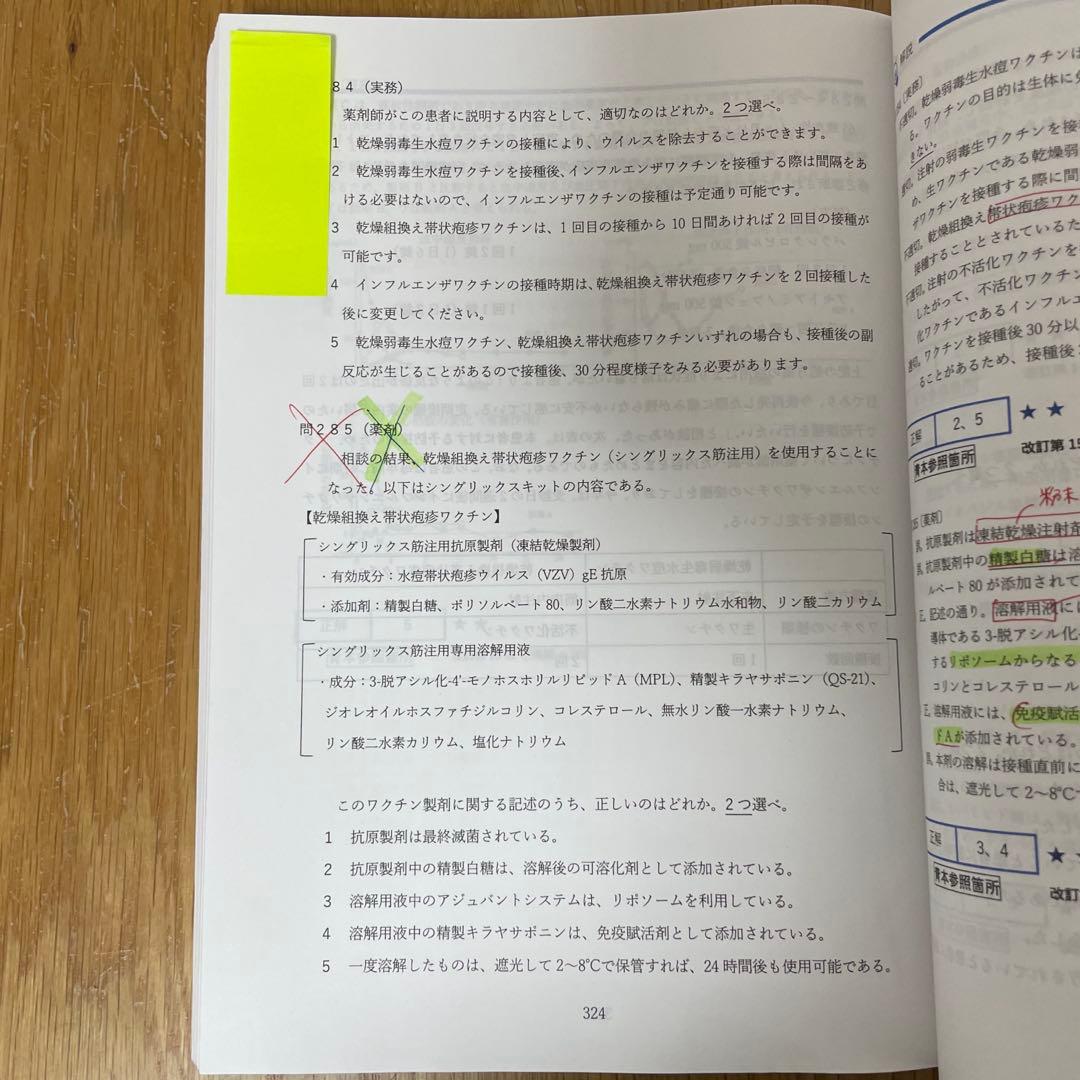 84（実務）
薬剤師がこの患者に説明する内容として、適切なのはどれか。2つ選べ。
1 乾燥弱毒生水痘ワクチンの接種により、ウイルスを除去することができます。
2 乾燥弱毒生水痘ワクチンを接種後、インフルエンザワクチンを接種する際は間隔をあ
ける必要はないので、インフルエンザワクチンの接種は予定通り可能です。
3 乾燥組換え帯状疱疹ワクチンは、1回目の接種から10日間あければ2回目の接種が
可能です。
4 インフルエンザワクチンの接種時期は、乾燥組換え帯状疱疹ワクチンを2回接種した
後に変更してください。
5 乾燥弱毒生水痘ワクチン、乾燥組換え帯状疱疹ワクチンいずれの場合も、接種後の副
反応が生じることがあるので接種後、30分程度様子をみる必要があります。
問285（薬剤）
相談の結果、乾燥組換え帯状疱疹ワクチン（シングリックス筋注用）を使用することに
なった。以下はシングリックスキットの内容である。
【乾燥組換え帯状疱疹ワクチン】
シングリックス筋注用抗原製剤（凍結乾燥製剤）
・有効成分：水痘帯状疱疹ウイルス（VZV）gE抗原
・添加剤：精製白糖、ポリソルベート80、リン酸二水素ナトリウム水和物、リン酸二カリウム
シングリックス筋注用専用溶解用液
・成分：3-脱アシル化-4'-モノホスホリルリピッドA（MPL）、精製キラヤサポニン（QS-21）、
ジオレオイルホスファチジルコリン、コレステロール、無水リン酸一水素ナトリウム、
リン酸二水素カリウム、塩化ナトリウム
このワクチン製剤に関する記述のうち、正しいのはどれか。2つ選べ。
1 抗原製剤は最終滅菌されている。
2 抗原製剤中の精製白糖は、溶解後の可溶化剤として添加されている。
3 溶解用液中のアジュバントシステムは、リポソームを利用している。
4 溶解用液中の精製キラヤサポニンは、免疫賦活剤として添加されている。
5 一度溶解したものは、遮光して2～8℃で保管すれば、24時間後も使用可能である。
324
解説
（実務）
不適切。乾燥弱毒生水痘ワクチンは
る。ワクチンの目的は生体に
きない。
適切。注射の弱毒生ワクチンを接種
め、生ワクチンである乾燥弱
ザワクチンを接種する際に間
不適切。乾燥組換え帯状疱疹ワク
接種することとされているた
不適切。注射の不活化ワクチンを
したがって、不活化ワクチン
化ワクチンであるインフルエ
適切。ワクチンを接種後30分以
ることがあるため、接種後
正解 2、5 ★★
青本参照箇所 改訂第15
粉末
[薬剤]
誤。抗原製剤は凍結乾燥注射剤
誤。抗原製剤中の精製白糖は溶
ルベート80が添加されて
正。記述の通り。溶解用液に
導体である3-脱アシル化
するリポソームからなる
コリンとコレステロール
正。溶解用液には、免疫賦活
ドAが添加されている。
誤。本剤の溶解は接種直前に
合は、遮光して2～8℃で
正解 3、4 ★
青本参照箇所 改訂